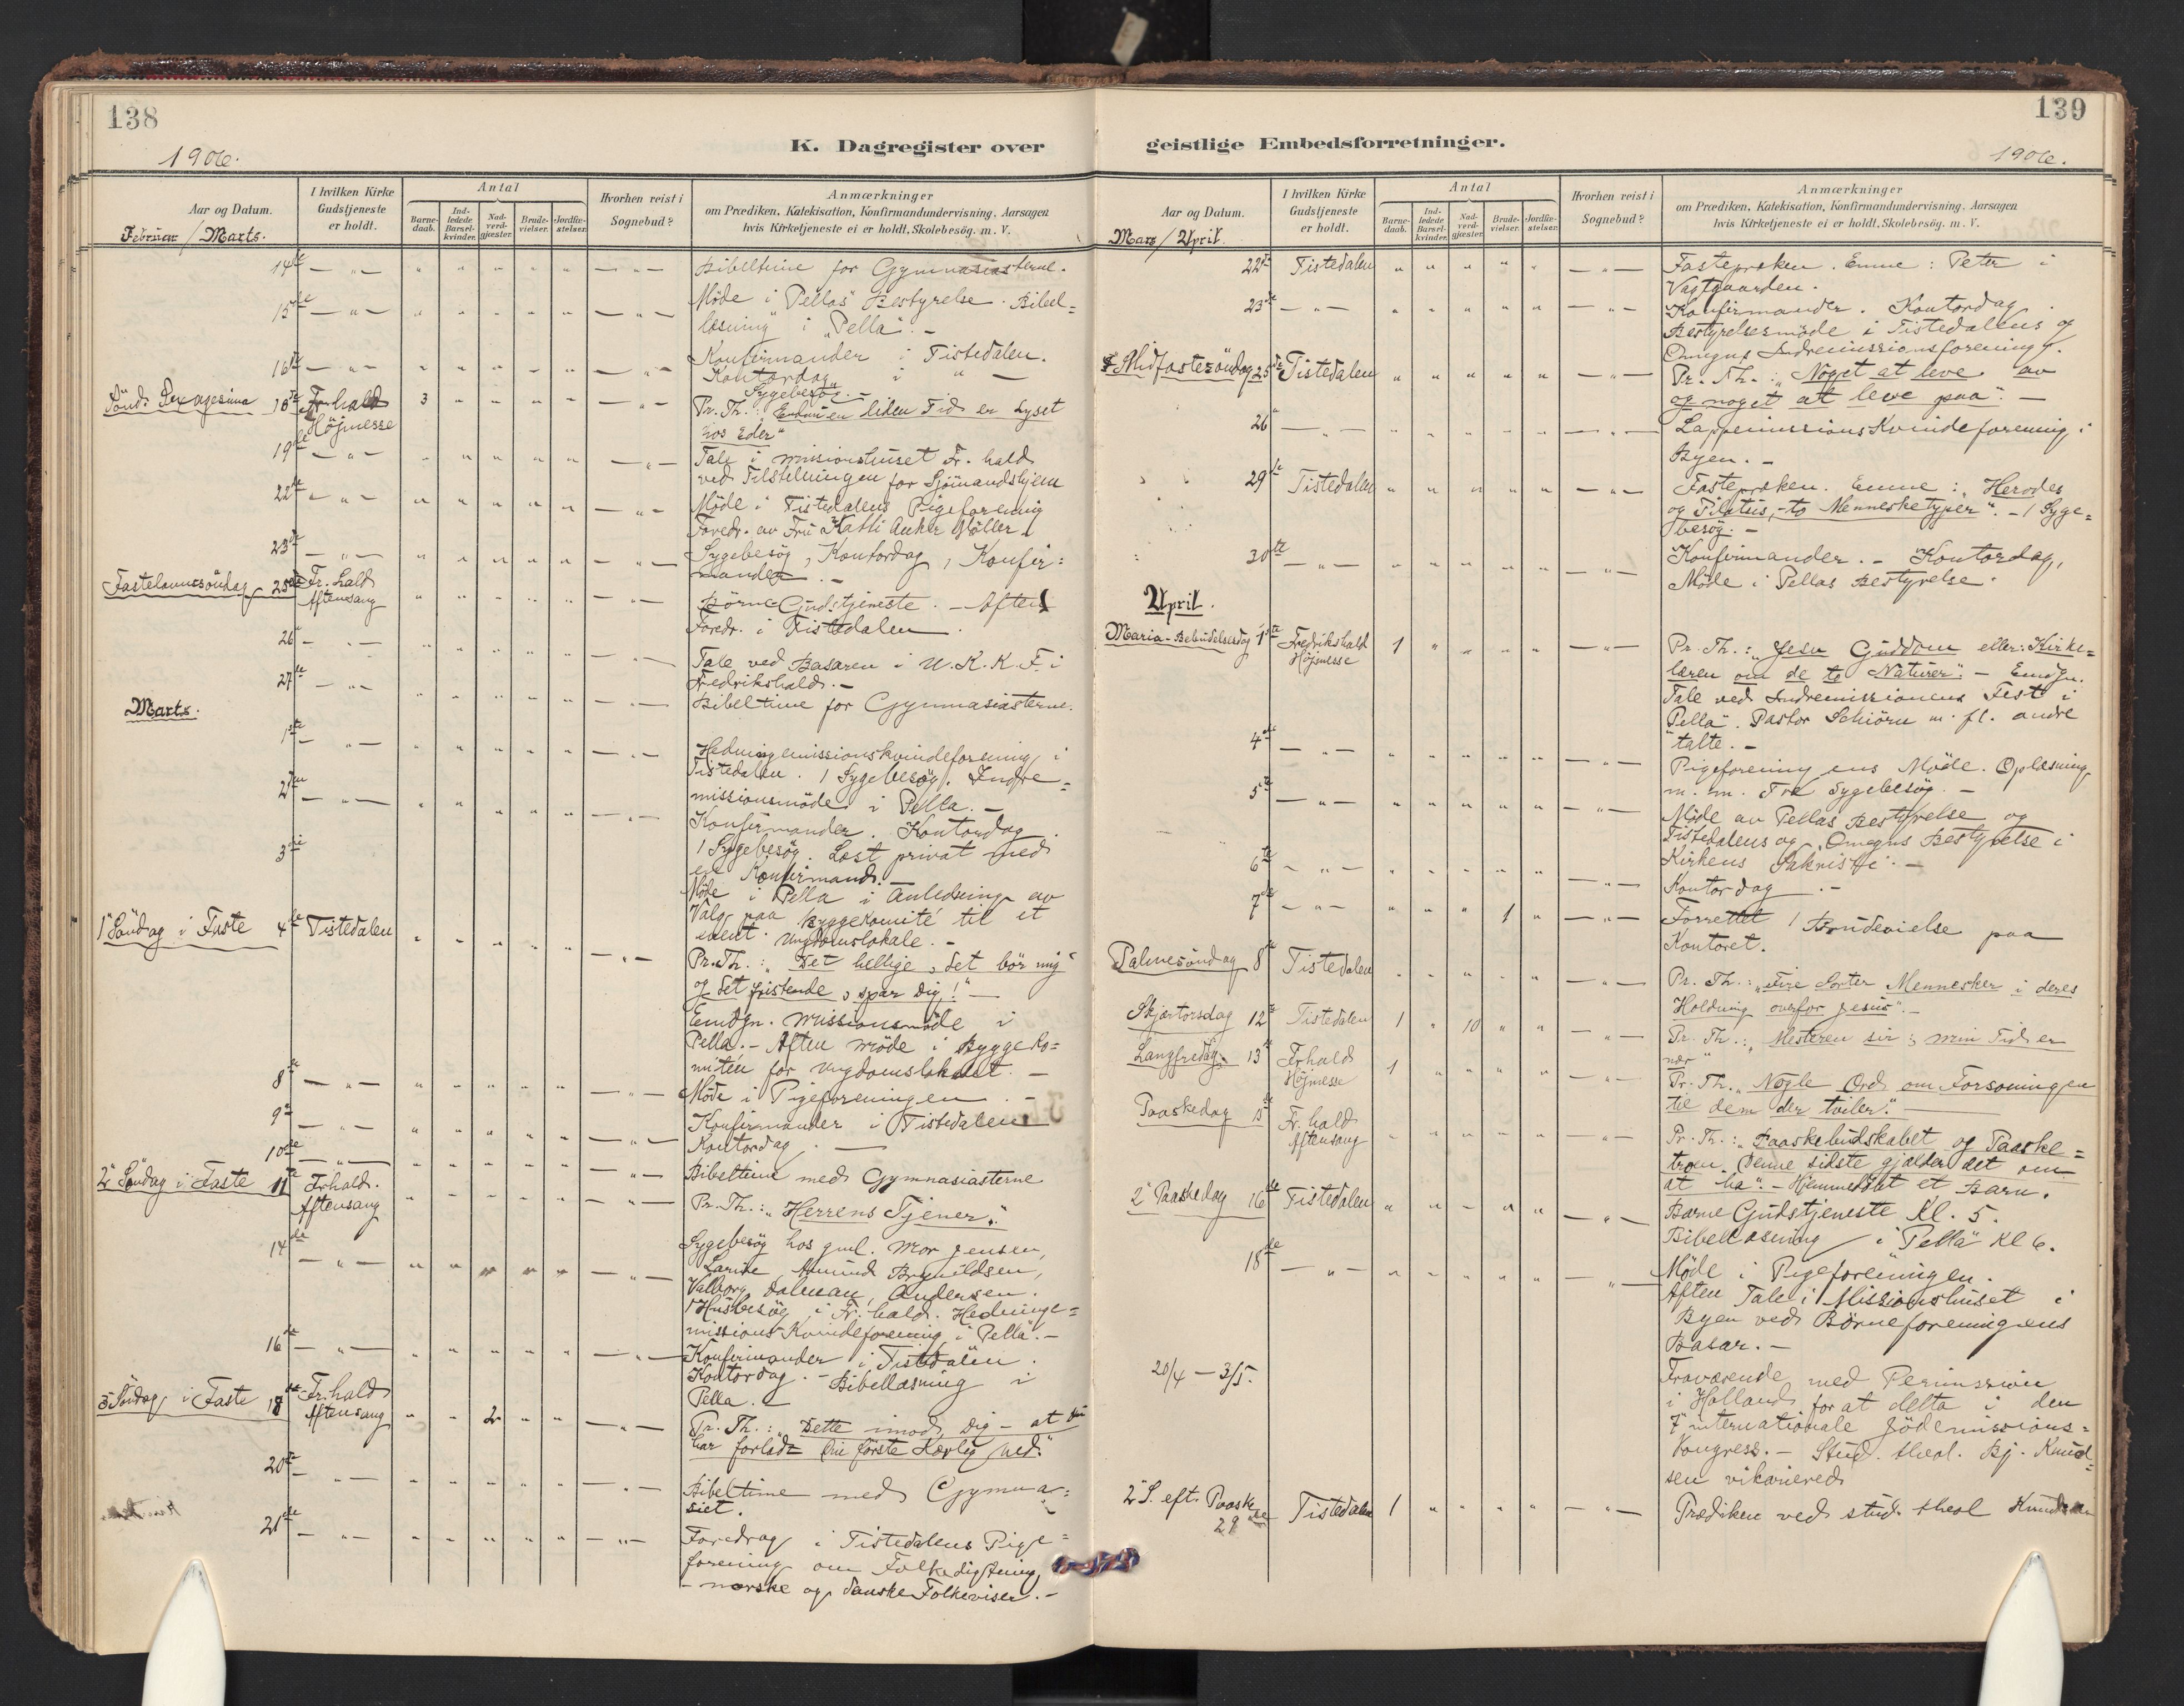 138
K. Dagregister over
1906.
Aar og Datum.
I hvilken Kirke Gudstjeneste er holdt.
Antal
Barnedaab.
Indledede Barselkvinder.
Nadverdgjæster.
Brudevielser.
Jordfæstelser.
Hvorhen reist i Sognebud?
Anmærkninger
om Prædiken, Katekisation, Konfirmandundervisning, Aarsagen
hvis Kirketjeneste ei er holdt, Skolebesög. m. V.
Februar / Marts.
14de — " — " " " " " — " — Bibeltime for Gymnasiasterne.
15de — " — " " " " " — " — Möde i "Pellas" Bestyrelse. Bibel=
læsning i "Pella". —
16de — " — " " " " " — " — Konfirmander i Tistedalen.
Kontordag i " —
Sygebesög. —
Sönd. Sexagesima 18de Fr.hald 3 " " " " — " — Pr. Th.: "Endnu en liden Tid er Lyset
Höjmesse
hos Eder"
19de — " — " " " " " — " — Tale i missionshuset Fr. hald
ved Tilstelningen for Sjömandshjem
22de — " — " " " " " — " — Möde i Tistedalens Pigeforening
Foredr. av Fru Katti Anker Möller
23de — " — " " " " " — " — Sygebesög, Kontordag, Konfir=
mander. —
Fastelavnssöndag 25de Fr. hald " " " " " — " — Börne-Gudstjeneste. — Aften
Aftensang
Foredr. i Tistedalen.
26de — " — " " " " " — " — Tale ved Basaren i U. K. K. F. i
Fredrikshald. —
27de — " — " " " " " — " — Bibeltime for Gymnasiasterne.
Marts.
1ste — " — " " " " " — " — Hedningemissionskvindeforening i
Tistedalen. 1 Sygebesög. Indre=
missionsmöde i Pella. —
2den — " — " " " " " — " — Konfirmander. Kontordag.
1 Sygebesög. Læst privat med
en Konfirmand. —
3die
Möde i Pella i Anledning av
Valg paa Byggekomité til et
event. Ungdomslokale. —
1ste Söndag i Faste 4de Tistedalen " " " " " — " — Pr. Th.: "Det hellige, det bör mig
og det fristende, spar Dig!" —
Emdgn. missionsmöde i
Pella. — Aften möde i Byggeko=
miteen for Ungdomslokalet. —
8de — " — " " " " " — " — Möde i Pigeforeningen. —
9de — " — " " " " " — " — Konfirmander i Tistedalen
Kontordag. —
10de — " — " " " " " — " — Bibeltime med Gymnasiasterne
2den Söndag i Faste 11te Fr.hald. " " " " " — " — Pr. Th.: "Herrens Tjener".
Aftensang
14de — " — " " " " " — " — Sygebesög hos gml. Mor Jensen,
Larine, Amund Brynildsen,
Valborg Dalman, Andersen.
1 Husbesög i Fr. hald. Hedninge=
missions Kvindeforening i "Pella". —
16de — " — " " " " " — " — Konfirmander i Tistedalen.
Kontordag. — Bibellæsning i
Pella. —
3die Söndag i Faste 18de Fr.hald " " 2 " " — " — Pr. Th.: "Dette imod Dig — at Du
Aftensang
har forladt Din första Kærlighed."
20de — " — " " " " " — " — Bibeltime med Gymna=
siet.
21de — " — " " " " " — " — Foredrag i Tistedalens Pige=
forening om Folkedigtning,
— norske og danske Folkeviser. —
139
geistlige Embedsforretninger.
1906.
Aar og Datum.
I hvilken Kirke Gudstjeneste er holdt.
Antal
Barnedaab.
Indledede Barselkvinder.
Nadverdgjæster.
Brudevielser.
Jordfæstelser.
Hvorhen reist i Sognebud?
Anmærkninger
om Prædiken, Katekisation, Konfirmandundervisning, Aarsagen
hvis Kirketjeneste ei er holdt, Skolebesög. m. V.
Mars / April.
22de Tistedalen " " " " " — " — Fastepræken. Emne: Peter i
Vagtgaarden.
23de — " — " " " " " — " — Konfirmander. Kontordag.
Bestyrelsesmöde i Tistedalens og
Omegns Indremissionsforening.
Midfastesöndag 25de Tistedalen " " " " " — " — Pr. Th.: "Noget at leve av
og noget at leve paa". —
26 — " — " " " " " — " — Lappemissions Kvindeforening i
Byen. —
29de Tistedalen " " " " " — " — Fastepræken. Emne: "Herodes
og Pilatus, — to Mennesketyper". — 1 Syge=
besög. —
30te — " — " " " " " — " — Konfirmander. — Kontordag,
Möde i Pellas Bestyrelse.
April.
Maria-Bebudelsesdag 1ste Fredrikshald 1 " " " " — " — Pr. Th.: "Jesu Guddom eller: Kirke=
Höjmesse
læren om de to Naturer". — Emdgn.
Tale ved Indremissionens Fest i
"Pella". Pastor Schiörn m. fl. andre
talte. —
4de — " — " " " " " — " — Pigeforeningens Möde. Oplæsning
m. m. Tre Sygebesög. —
5te — " — " " " " " — " — Möde av Pellas Bestyrelse og
Tistedalens og Omegns Bestyrelse i
Kirkens Sakristi. —
6te — " — " " " " " — " — Kontordag. —
7de — " — " " " 1 " — " — Forrettet 1 Brudevielse paa
Kontoret.
Palmesöndag 8de Tistedalen " " " " " — " — Pr. Th.: "Fire Sorter Mennesker i deres
Holdning overfor Jesus". —
Skjærtorsdag 12te Tistedalen 1 " 10 " " " — Pr. Th.: "Mesteren sir: min Tid er
nær"
Langfredag 13de Fr.hald 1 " " " " — " — Pr. Th. "Nogle Ord om Forsoningen
Höjmesse
til dem der tviler". —
Paaskedag 15de Fr. hald " " " " " — " — Pr. Th.: "Paaskebudskabet og Paaske=
Aftensang
troen. Denne sidste gjælder det om
at ha". — Hjemmedöbt et Barn.
2den Paaskedag 16de Tistedalen " " " " " — " — Barne Gudstjeneste Kl. 5.
Bibellæsning i "Pella" Kl 6.
18de — " — " " " " " — " — Möde i Pigeforeningen.
Aften Tale i Missionshuset i
Byen ved Börneforeningens
Basar. —
20/4 — 3/5.
Fraværende med Permission
i Holland for at delta i den
7de internationale Jödemissions=
Kongress. — Stud. theol. Bj. Knud=
sen vikarierede
2. S. eft. Paaske 29de Tistedalen 1 " " " " — " — Prædiken ved stud. theol Knudsen